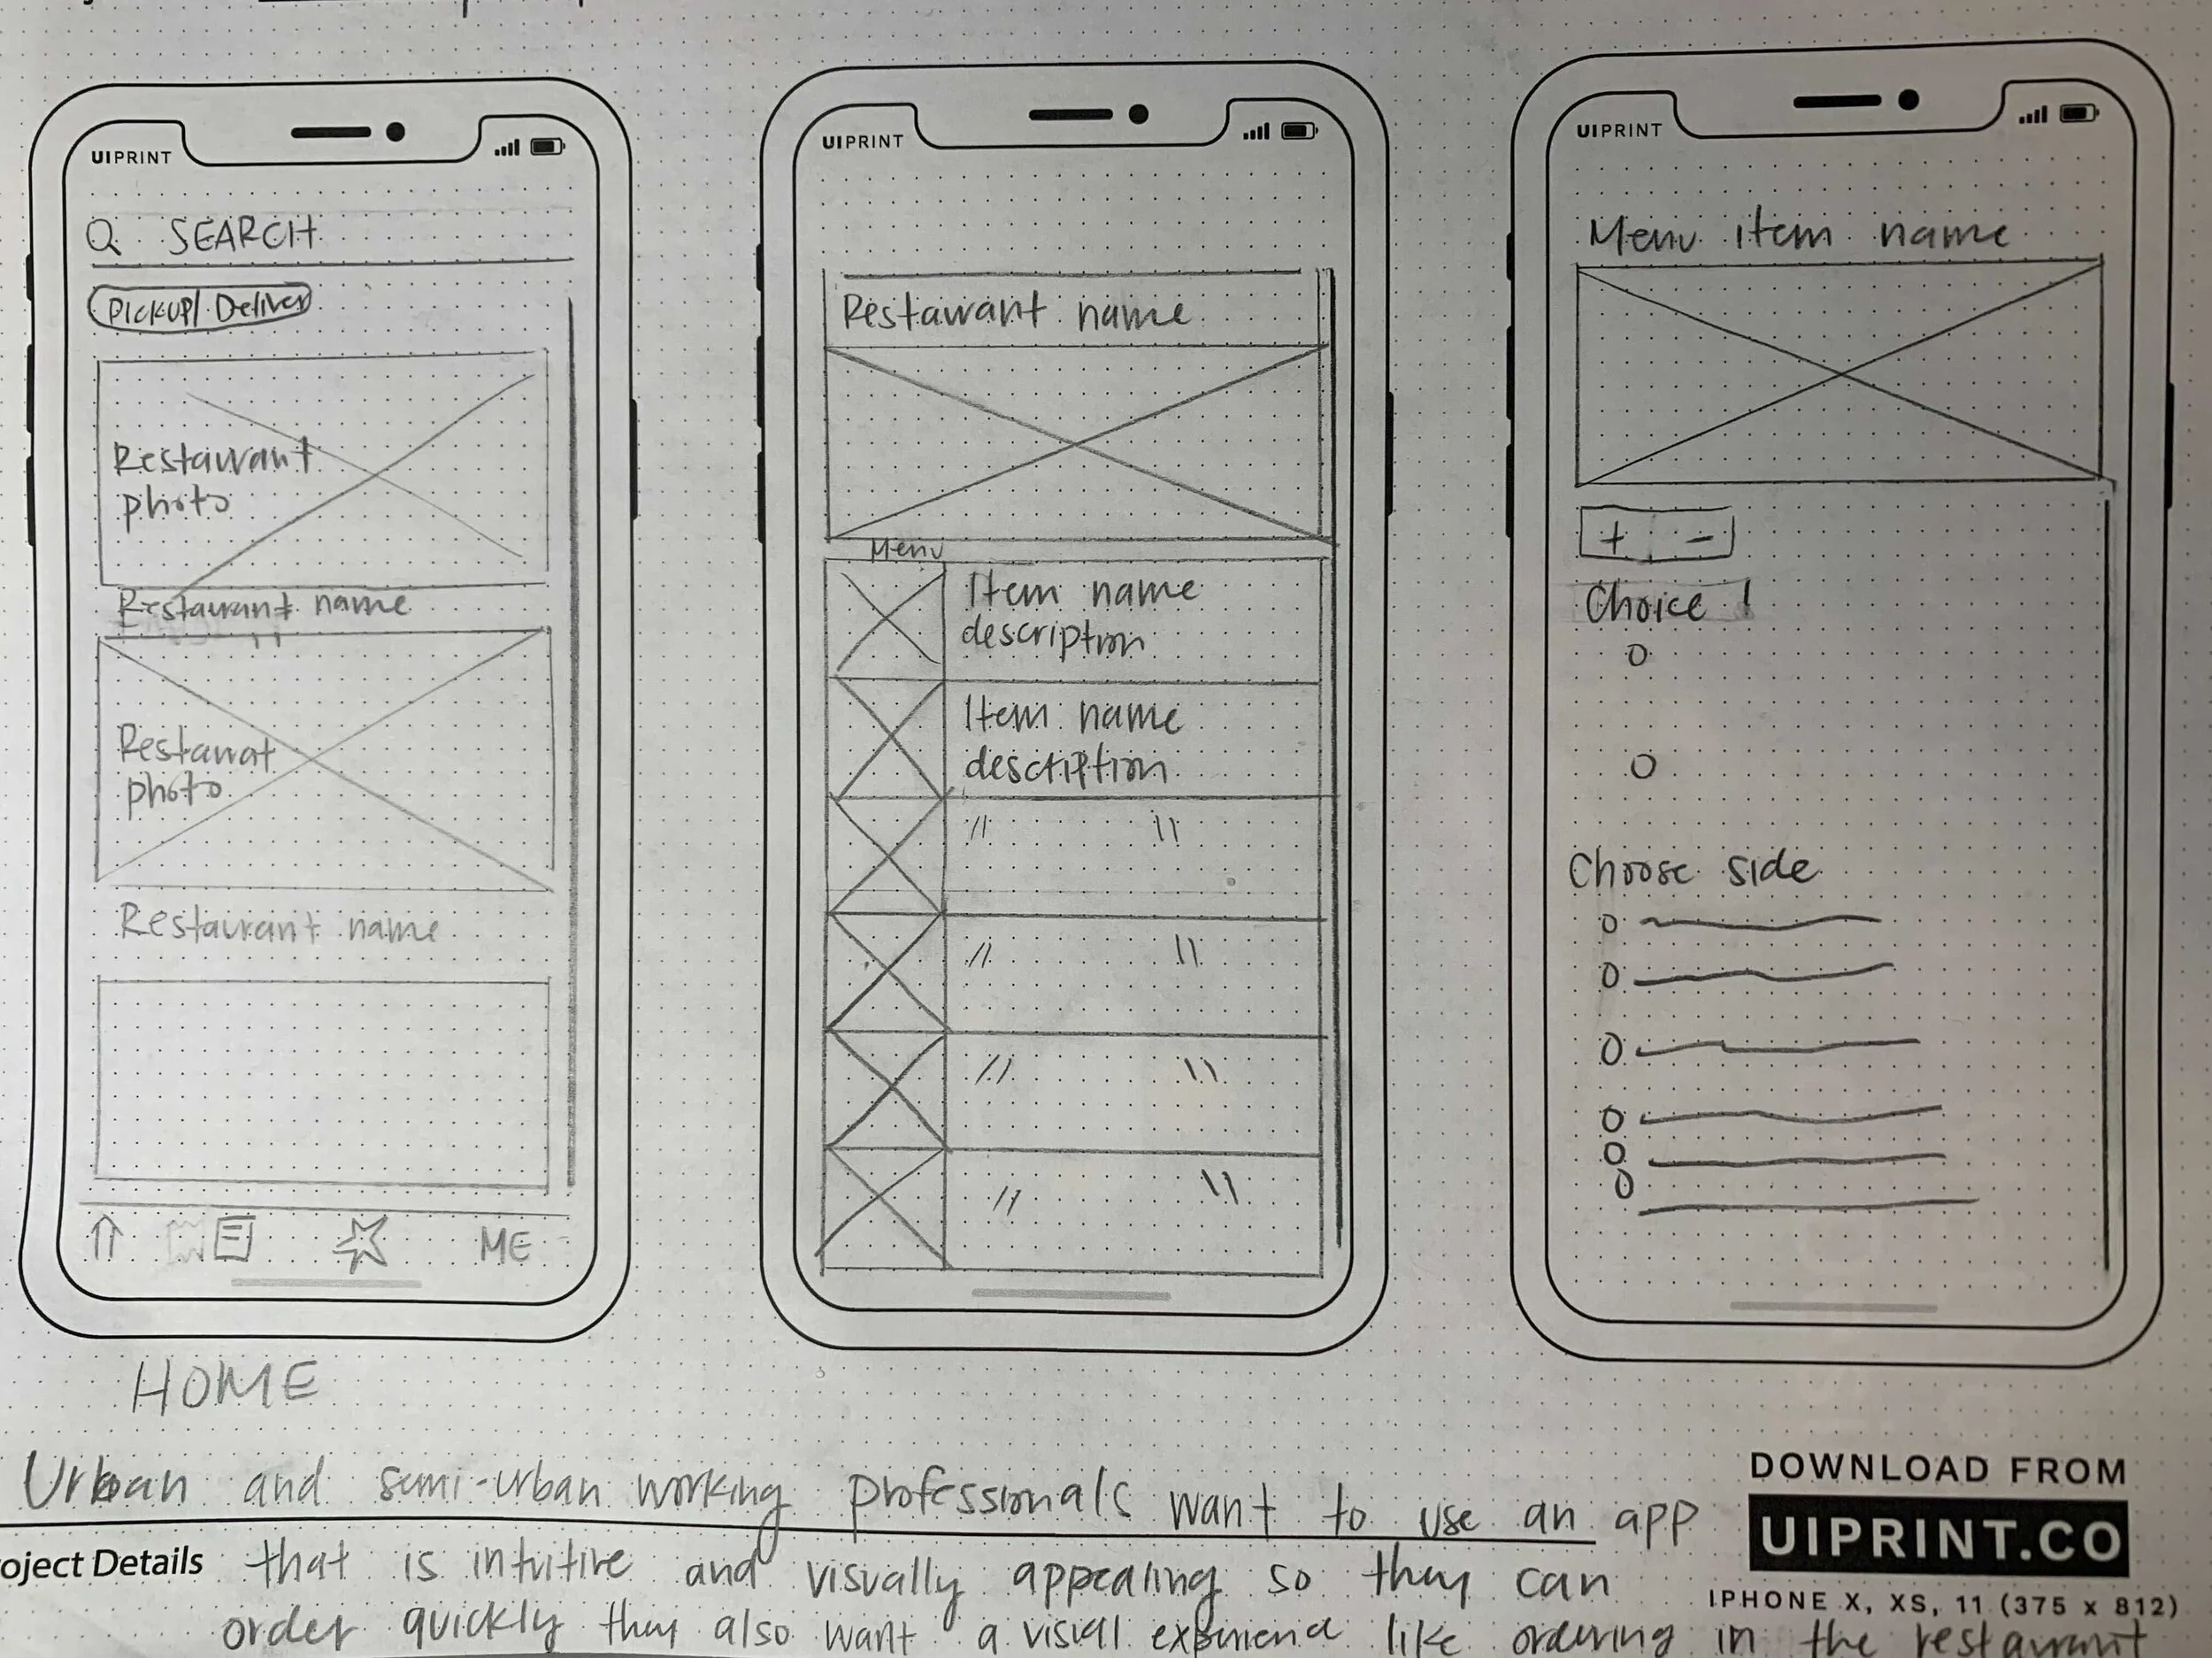 UIPRINT
SEARCH
Pickup/Deliver
Restaurant
photo
Restaurant name
Restaurat
photo
Restaurant name
ME
HOME
UIPRINT
Restaurant name
Menu
Item name
description
Item name
description
// \\
// \\
// \\
// \\
UIPRINT
Menu item name
+ -
Choice 1
Choose side
Urban and semi-urban working professionals want to use an app
oject Details that is intuitive and visually appealing so they can
order quickly they also want a visual experience like ordering in the restaurant
DOWNLOAD FROM
UIPRINT.CO
IPHONE X, XS, 11 (375 x 812)